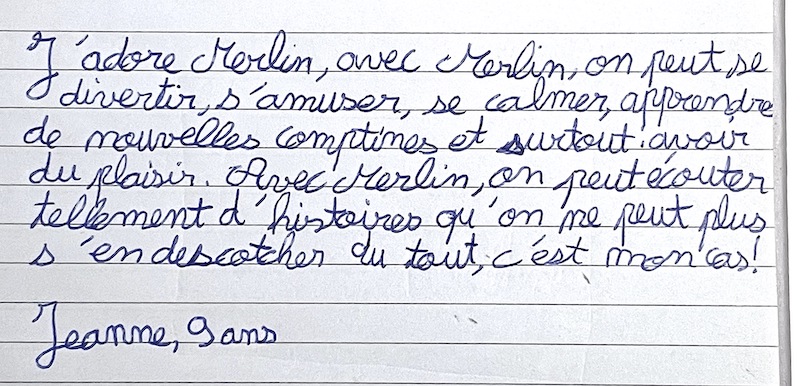 J'adore Merlin, avec Merlin, on peut se
divertir, s'amuser, se calmer, apprendre
de nouvelles comptines et surtout: avoir
du plaisir. Avec Merlin, on peut écouter
tellement d'histoires qu'on ne peut plus
s'en descotcher du tout, c'est mon cas!
Jeanne, 9 ans